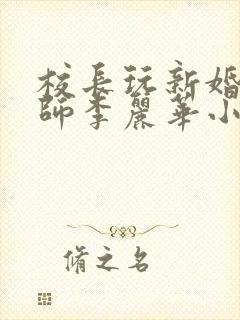 校長玩新婚
師李麗華小
脩之名